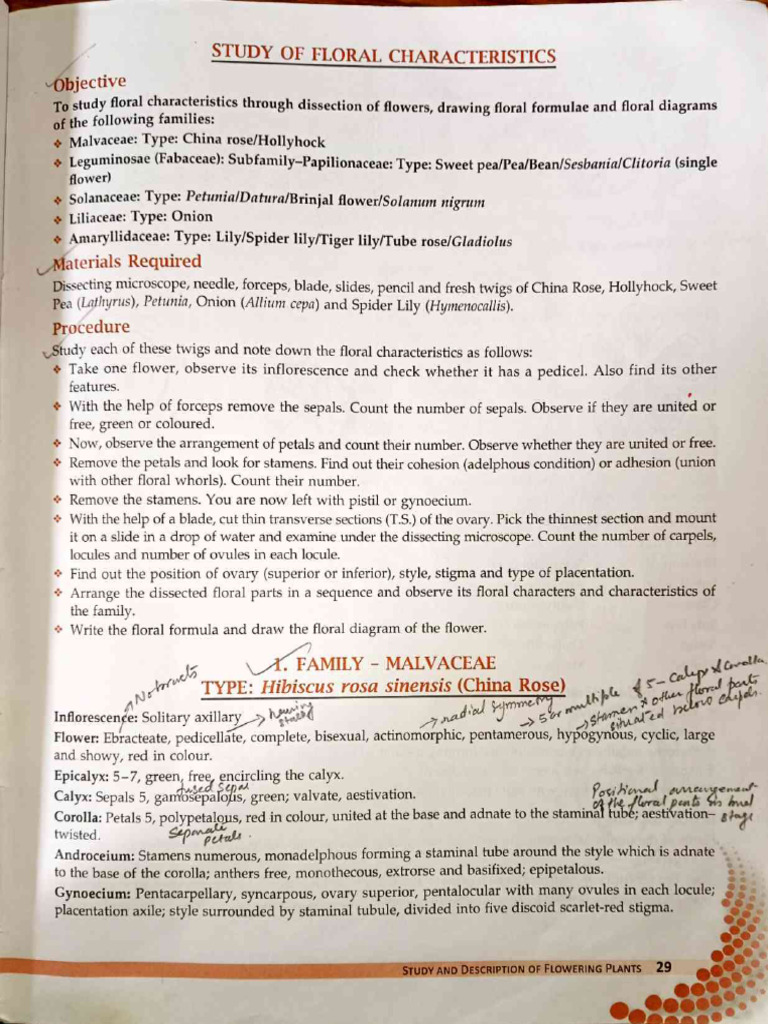 STUDY OF FLORAL CHARACTERISTICS
Objective
To study floral characteristics through dissection of flowers, drawing floral formulae and floral diagrams
of the following families:
❖ Malvaceae: Type: China rose/Hollyhock
❖ Leguminosae (Fabaceae): Subfamily–Papilionaceae: Type: Sweet pea/Pea/Bean/Sesbania/Clitoria (single
flower)
❖ Solanaceae: Type: Petunia/Datura/Brinjal flower/Solanum nigrum
❖ Liliaceae: Type: Onion
❖ Amaryllidaceae: Type: Lily/Spider lily/Tiger lily/Tube rose/Gladiolus
Materials Required
Dissecting microscope, needle, forceps, blade, slides, pencil and fresh twigs of China Rose, Hollyhock, Sweet
Pea (Lathyrus), Petunia, Onion (Allium cepa) and Spider Lily (Hymenocallis).
Procedure
Study each of these twigs and note down the floral characteristics as follows:
❖ Take one flower, observe its inflorescence and check whether it has a pedicel. Also find its other
features.
❖ With the help of forceps remove the sepals. Count the number of sepals. Observe if they are united or
free, green or coloured.
❖ Now, observe the arrangement of petals and count their number. Observe whether they are united or free.
❖ Remove the petals and look for stamens. Find out their cohesion (adelphous condition) or adhesion (union
with other floral whorls). Count their number.
❖ Remove the stamens. You are now left with pistil or gynoecium.
❖ With the help of a blade, cut thin transverse sections (T.S.) of the ovary. Pick the thinnest section and mount
it on a slide in a drop of water and examine under the dissecting microscope. Count the number of carpels,
locules and number of ovules in each locule.
❖ Find out the position of ovary (superior or inferior), style, stigma and type of placentation.
❖ Arrange the dissected floral parts in a sequence and observe its floral characters and characteristics of
the family.
❖ Write the floral formula and draw the floral diagram of the flower.
1. FAMILY – MALVACEAE
TYPE: Hibiscus rosa sinensis (China Rose)
No bracts
radial symmetry
5 or multiple of 5 - Calyx & Corolla
stamen & other floral parts
situated below
Inflorescence: Solitary axillary
having
Flower: Ebracteate, pedicellate, complete, bisexual, actinomorphic, pentamerous, hypogynous, cyclic, large
and showy, red in colour.
Epicalyx: 5–7, green, free, encircling the calyx.
fused sepal
Calyx: Sepals 5, gamosepalous, green; valvate, aestivation.
Positional arrangement
of the floral parts in bud
stage
Corolla: Petals 5, polypetalous, red in colour, united at the base and adnate to the staminal tube; aestivation–
twisted.
Separate
petals
Androceium: Stamens numerous, monadelphous forming a staminal tube around the style which is adnate
to the base of the corolla; anthers free, monothecous, extrorse and basifixed; epipetalous.
Gynoecium: Pentacarpellary, syncarpous, ovary superior, pentalocular with many ovules in each locule;
placentation axile; style surrounded by staminal tubule, divided into five discoid scarlet-red stigma.
STUDY AND DESCRIPTION OF FLOWERING PLANTS 29